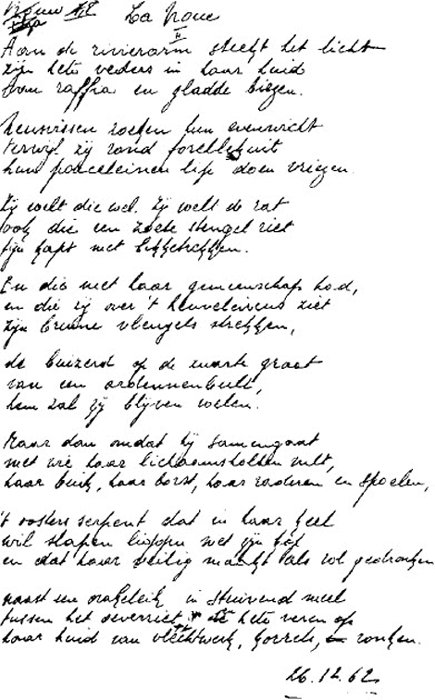 Vrouw La Noue
II
Aan de rivierarm steekt het licht
zijn hete veders in haar huid
van raffia en gladde biezen.
zoeken hun evenwicht
terwijl zij rond forellekuit
hun porceleinen lijf doen vriezen.
Zij voelt die wel. Zij voelt de rat
ook die een zoete stengel riet
fijn kapt met bektrekken.
En die met haar gemeenschap had,
en die zij over 't heuvelcircus ziet
zijn bruine vleugels strekken,
de buizerd op de zwarte graat
van een ardennenbult,
hem zal zij blijven voelen.
Maar dan omdat hij samengaat
met wie haar lichaamsholten vult,
haar buik, haar borst, haar aderen en spoelen,
't oosters serpent dat in haar keel
wil slapen liggen met zijn
en dat haar veilig maakt als vol gedronken
naast een in stuivend meel
tussen het oeverriet, hete veren op
haar huid van vlechtwerk, ronken.
26.12.62